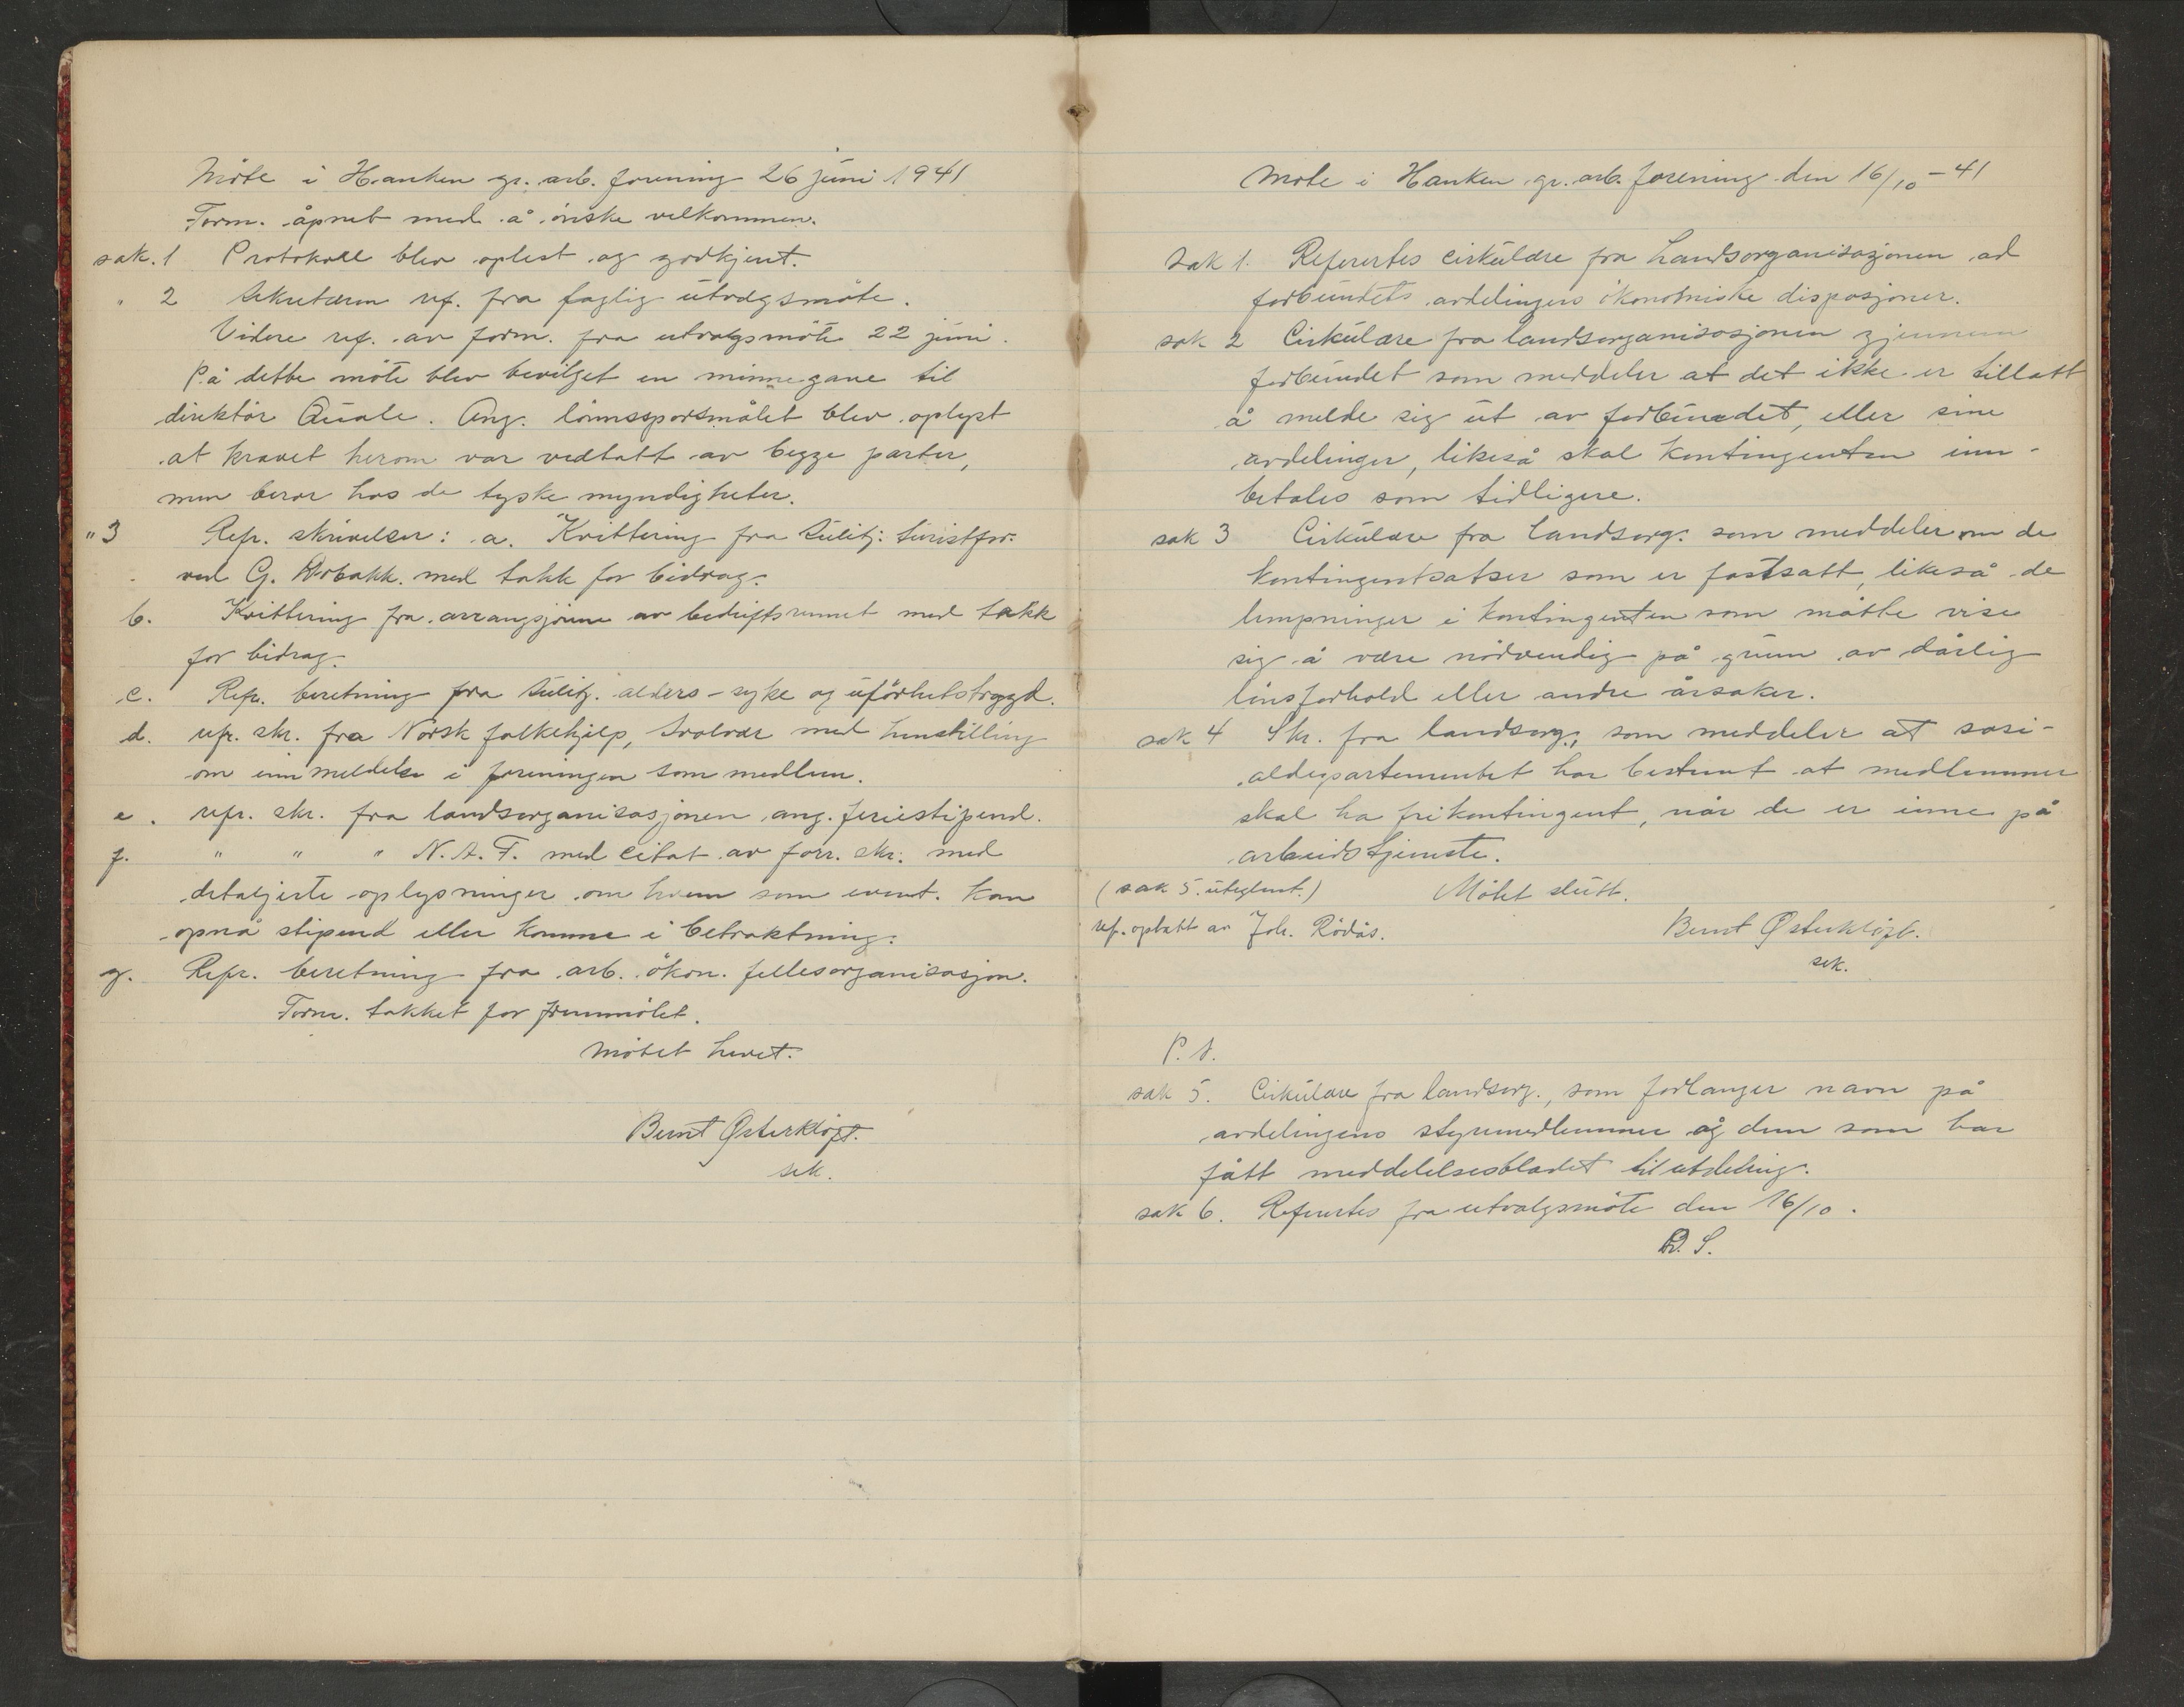 Møte i Hanken gr. arb. forening 26 juni 1941
Form. åpnet med å ønske velkommen.
sak. 1 Protokoll blev oplest og godkjent.
" 2 Sekretæren ref. fra faglig utvalgsmøte.
Videre ref. av form. fra utvalgsmøte 22 juni.
På dette møte blev bevilget en minnegave til
direktør Quale. Ang. lønnsspørsmålet blev oplyst
at kravet herom var vedtatt av begge parter,
men beror hos de tyske myndigheter.
" 3 Refr. skrivelser: a. Kvittering fra Sulitj. turistfor.
ved G. med takk for bidrag.
b. Kvittering fra arrangsjørene av bedriftsrennet med takk
for bidrag.
c. Refr. beretning fra Sulitj. alders-syke og uførhetstrygd.
d. refr. skr. fra Norsk folkehjelp, Svolvær med henstilling
om innmeldelse i foreningen som medlem.
e. refr. skr. fra landsorganisasjonen ang. feriestipend.
f. " " " N.A.F. med citat av forr. skr. med
detaljerte oplysninger om hvem som event. kan
opnå stipend eller komme i betraktning.
g. Refr. beretning fra arb. økon. fellesorganisasjon.
Form. takket for fremmøtet.
Møtet hevet.
Bernt Østerkløft.
sek.
Møte i Hanken gr. arb. forening den 16/10-41
Sak 1. Refertes cirkulære fra Landsorganisasjonen ad
forbundets avdelingers økonomiske disposjoner.
sak 2 Cirkulære fra landsorganisosjonen gjennem
forbundet som meddeler at det ikke er tillatt
å melde sig ut av forbundet, eller sine
avdelinger, likeså skal kontingenten inn-
betales som tidligere.
sak 3 Cirkulære fra Landsorg. som meddeler om de
kontingentsatser som er fastsatt, likeså de
lempninger i kontingenten som måtte vise
sig å være nødvendig på grunn av dårlig
lønsforhold eller andre årsaker.
sak 4 Skr. fra landsorg., som meddeler at sosi-
aldepartementet har bestemt at medlemmer
skal ha frikontingent, når de er inne på
arbeidstjeneste.
(sak 5. uteglemt.) Møtet slutt.
ref. optatt av Joh. Rødås. Bernt Østerkløft.
sek.
P.S.
sak 5. Cirkulære fra landsorg., som forlanger navn på
avdelingens styremedlemmer og dem som har
fått meddelelsesbladet til utdeling.
sak 6. Refertes fra utvalgsmøte den 16/10.
D.S.